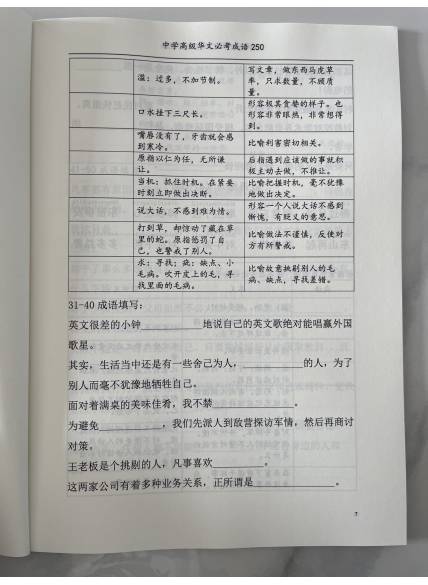 中学高级华文必考成语 250
滥：过多，不加节制。
写文章，做东西马虎草
率，只求数量，不顾质
量。
口水挂下三尺长。
形容极其贪婪的样子。也
形容非常眼热，非常想得
到。
嘴唇没有了，牙齿就会感
到寒冷。
比喻利害密切相关。
原指以仁为任，无所谦
让。
后指遇到应该做的事就积
极主动去做，不推让。
当机：抓住时机。在紧要
时刻立即做出决断。
比喻把握时机，毫不犹豫
地做出决定。
说大话，不感到难为情。
形容一个人说大话不感到
惭愧，有贬义的意思。
打到草，却惊动了藏在草
里的蛇。原指惩罚了自
己，也警戒了别人。
比喻做法不谨慎，反使对
方有所警戒。
求：寻找；疵：缺点、小
毛病。吹开皮上的毛，寻
找里面的毛病。
比喻故意挑剔别人的毛
病、缺点，寻找差错。
31-40 成语填写：
英文很差的小钟__________地说自己的英文歌绝对能唱赢外国
歌星。
其实，生活当中还是有一些舍己为人，__________的人，为了
别人而毫不犹豫地牺牲自己。
面对着满桌的美味佳肴，我不禁____________。
为避免__________，我们先派人到敌营探访军情，然后再商讨
对策。
王老板是个挑剔的人，凡事喜欢________。
这两家公司有着多种业务关系，正所谓是____________。
7